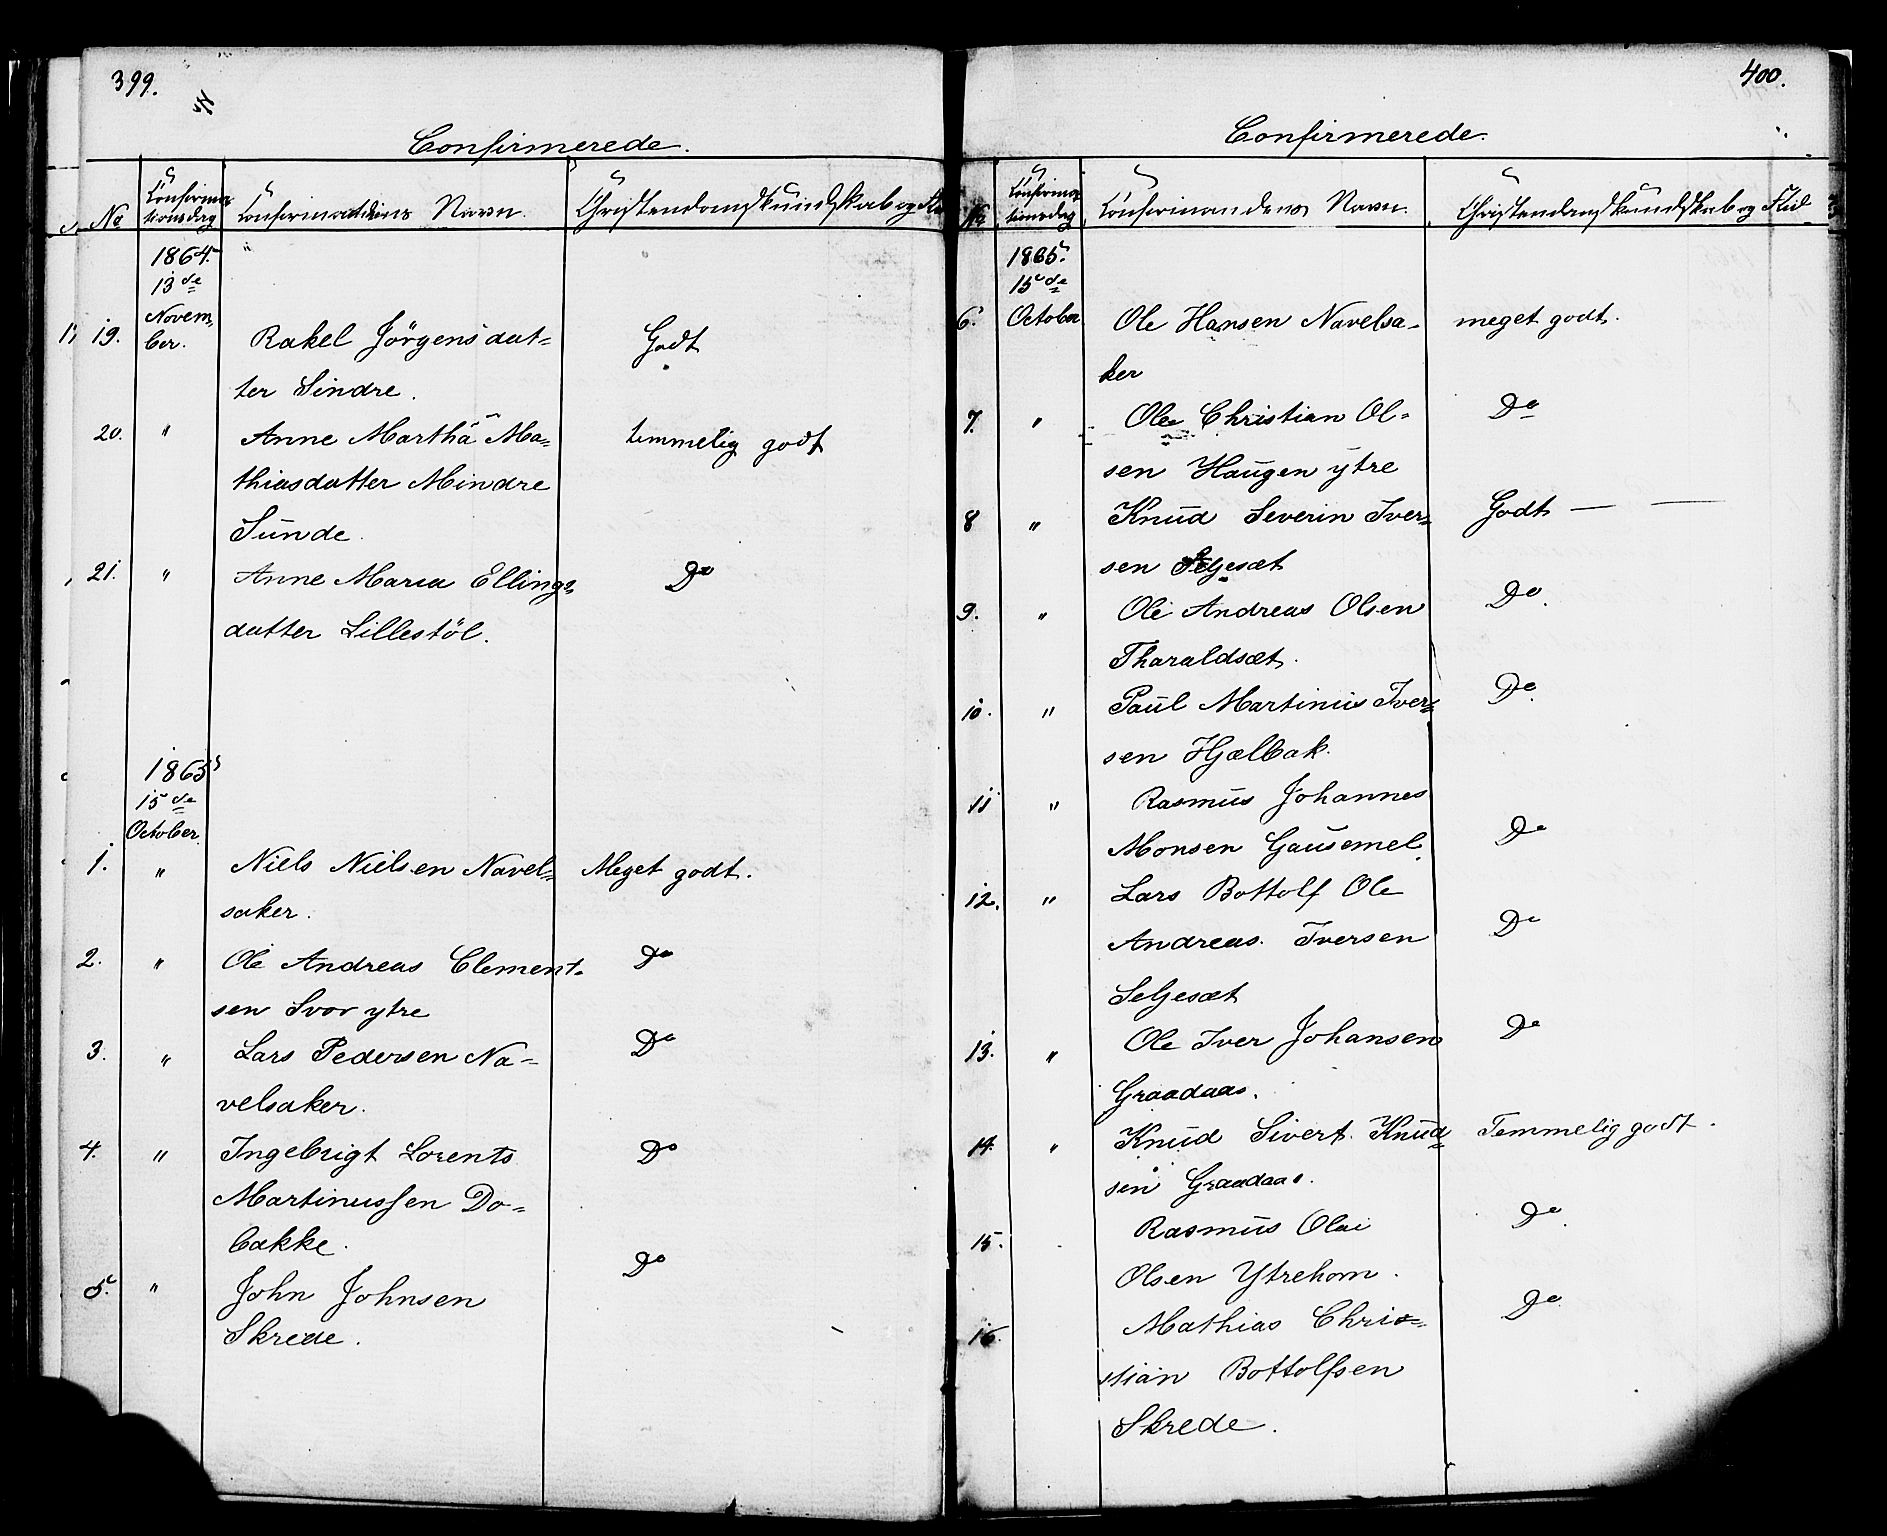 399.
Confirmerede.
No Confirma-
tionsdag Confirmandens Navn. Christendomskundskab og
1864.
13de
Novem-
ber.
19. Rakel Jörgensdat=
ter Sindre. Godt
20. " Anne Martha Ma=
thiasdatter Mindre
Sunde. temmelig godt
21. " Anne Maria Ellings=
datter Lillestöl. Do
1865
15de
October.
1. " Niels Nielsen Navel= Meget godt.
saker.
2. " Ole Andreas Clement= Do
sen Svor ytre
3. " Lars Pedersen Na= Do
velsaker.
4. " Ingebrigt Lorents Do
Martinussen Do=
bakke.
5. " John Johnsen Do
Skrede.
400.
Confirmerede.
No Confirma-
tionsdag Confirmandens Navn. Christendomskundskab og Flid
1865.
15de
6. October Ole Hansen Navelsa- meget godt.
ker
7. " Ole Christian Ol= Do
sen Haugen ytre
8 " Knud Severin Iver= Godt — —
sen Seljesæt
9. " Ole Andreas Olsen Do.
Tharaldsæt.
10. " Paul Martinus Iver= Do.
sen Hjælbak.
11 " Rasmus Johannes
Monsen Gausemel. Do
12. " Lars Bottolf Ole
Andreas Iversen Do
Seljesæt
13. " Ole Iver Johansen Do
Graadaas.
14. " Knud Sivert Knud= Temmelig godt.
sen Graadaas.
15. Rasmus Olai Do.
Olsen Ytrehorn.
16. Mathias Chri= Do.
stian Bottolfsen
Skrede.